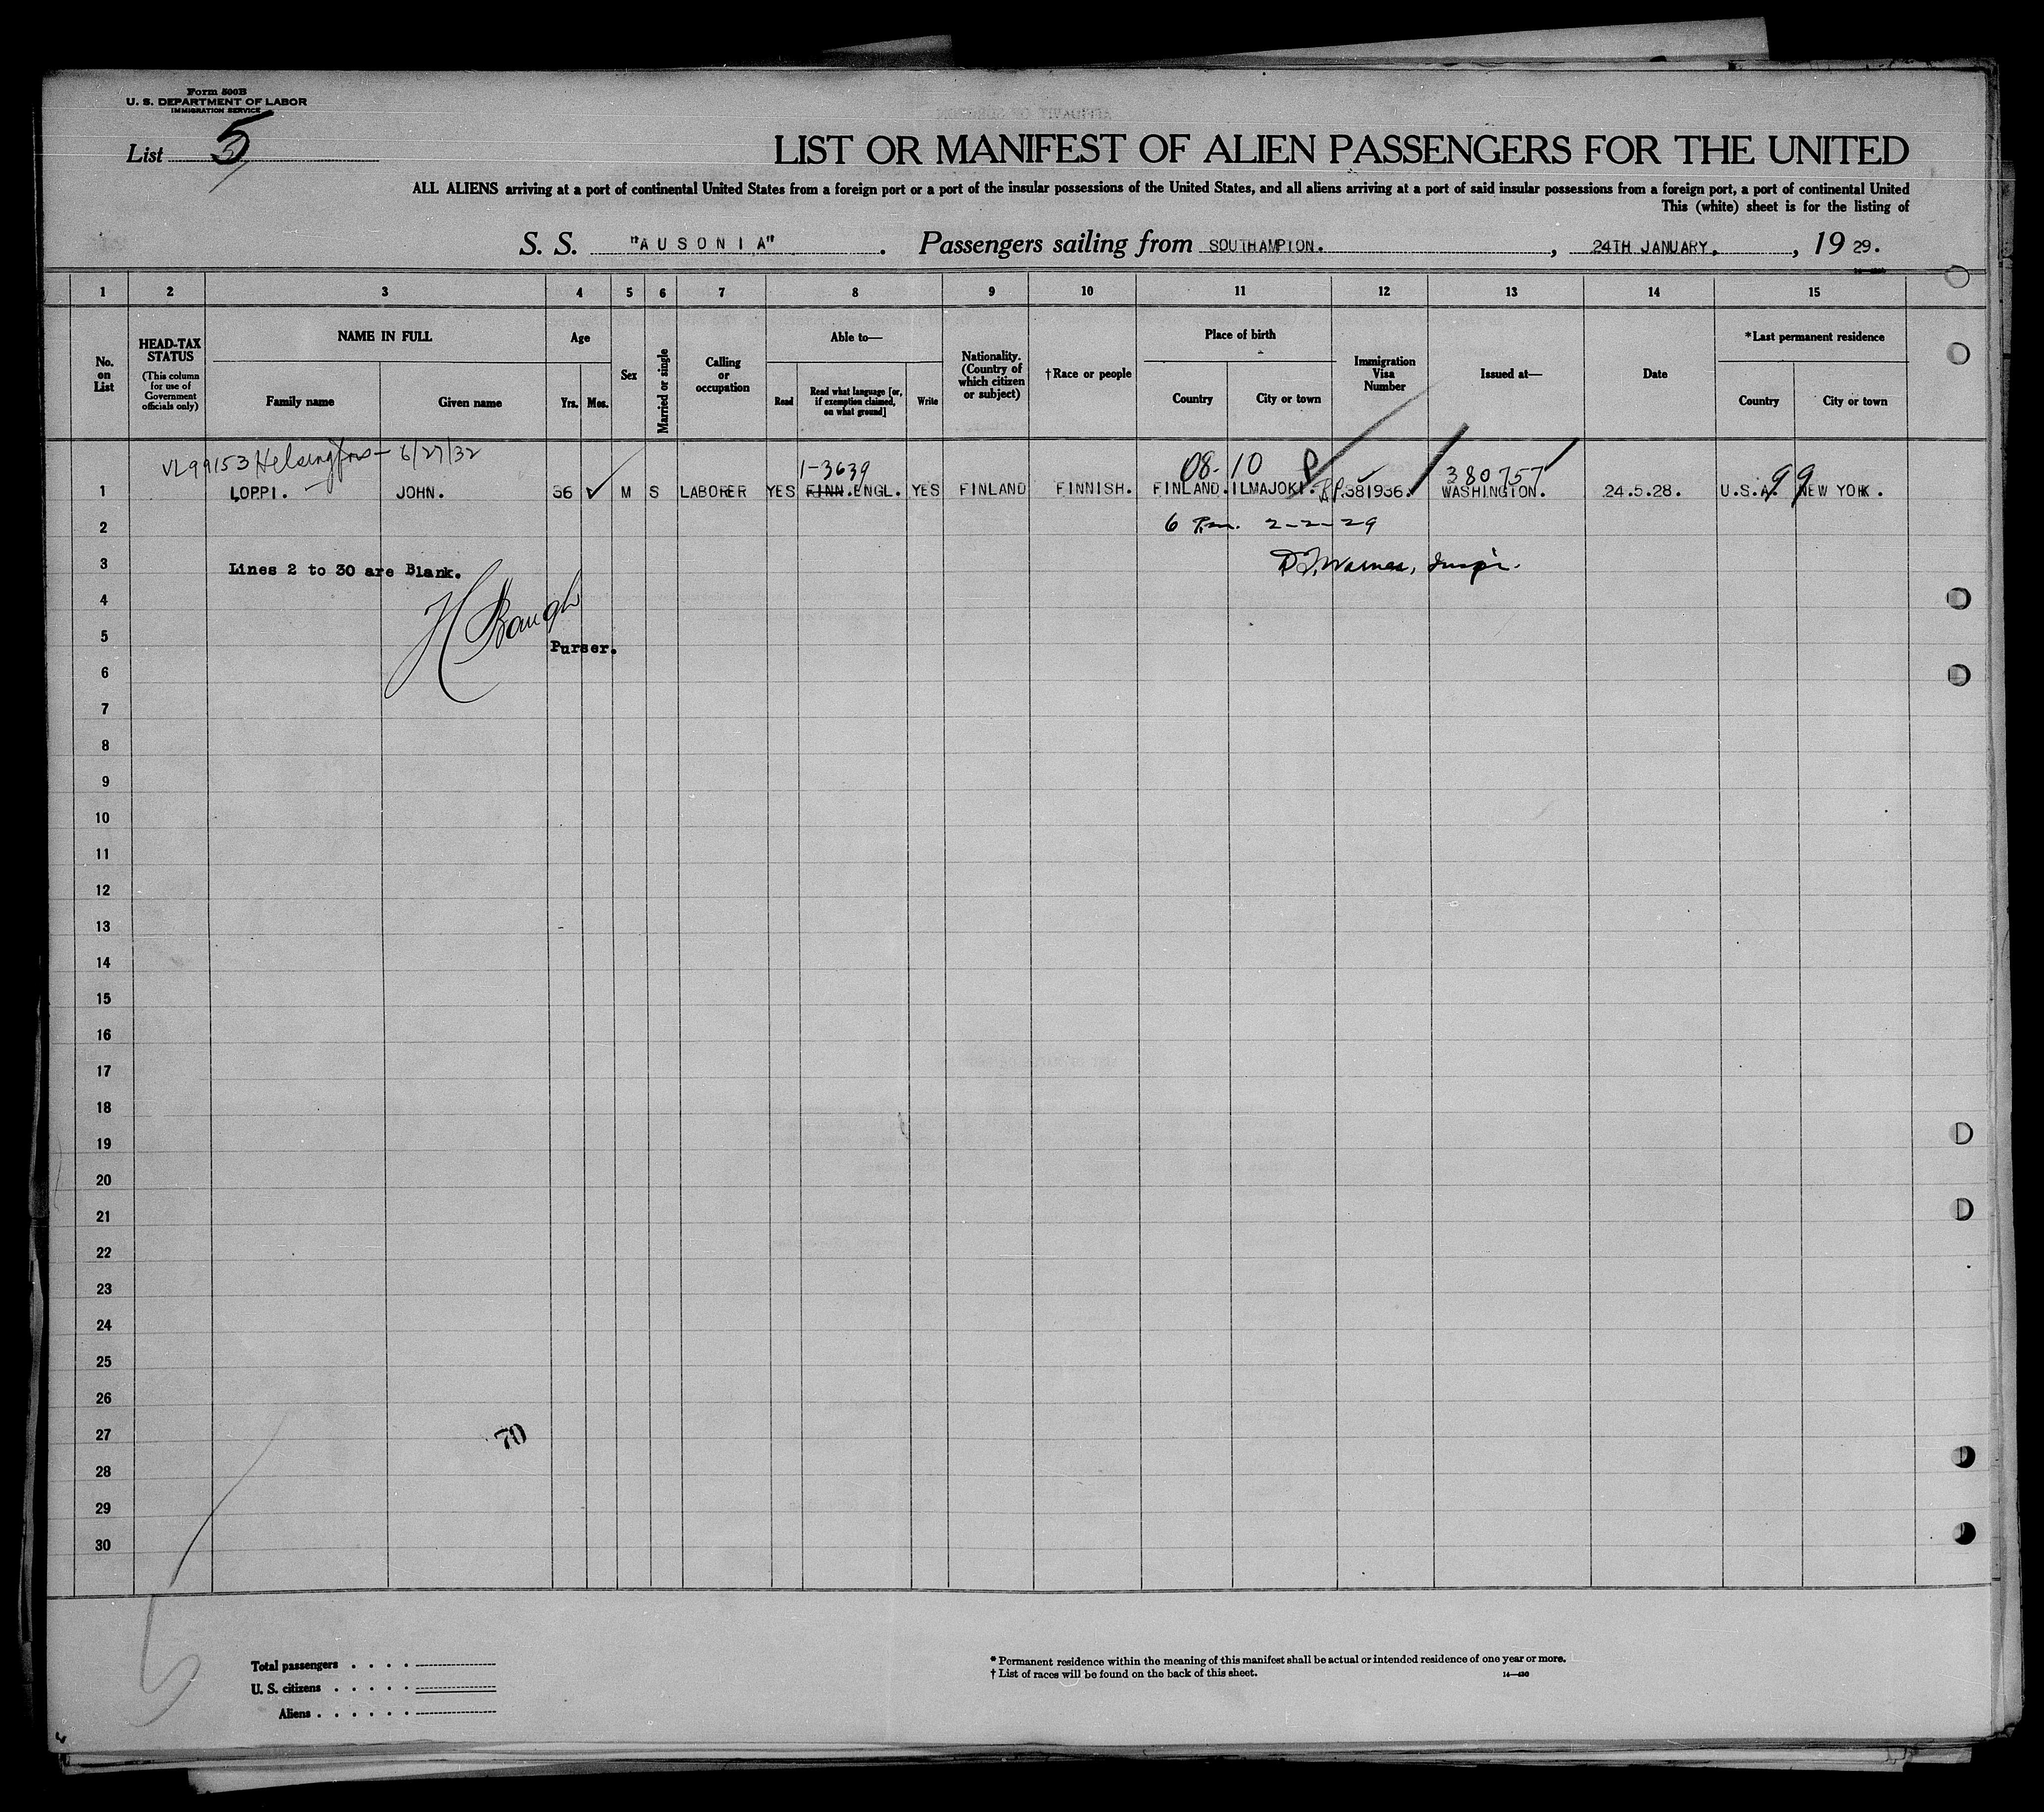 Form 500B
U. S. DEPARTMENT OF LABOR
IMMIGRATION SERVICE
List 5
LIST OR MANIFEST OF ALIEN PASSENGERS FOR THE UNITED
ALL ALIENS arriving at a port of continental United States from a foreign port or a port of the insular possessions of the United States, and all aliens arriving at a port of said insular possessions from a foreign port, a port of continental United
This (white) sheet is for the listing of
S. S. "AUSONIA". Passengers sailing from SOUTHAMPTON. , 24TH JANUARY. , 19 29.
1 2 3 4 5 6 7 8 9 10 11 12 13 14 15
No. on List
HEAD-TAX STATUS
(This column for use of Government officials only)
NAME IN FULL
Family name
Given name
Age
Yrs. Mos.
Sex
Married or single
Calling or occupation
Able to—
Read
Read what language [or, if exemption claimed, on what ground]
Write
Nationality. (Country of which citizen or subject)
†Race or people
Place of birth
Country
City or town
Immigration Visa Number
Issued at—
Date
*Last permanent residence
Country
City or town
VL99153 Helsingfors - 6/27/32
1-3639 08-10 P 380757 99
1 LOPPI. JOHN. 36 M S LABORER YES FINN.ENGL. YES FINLAND FINNISH. FINLAND. ILMAJOKI. RP.381936. WASHINGTON. 24.5.28. U.S.A. NEW YORK.
2 6 Pm. 2-2-29
3 Lines 2 to 30 are Blank.
4
5 H Baugh
Purser.
6
7
8
9
10
11
12
13
14
15
16
17
18
19
20
21
22
23
24
25
26
27 70
28
29
30
Total passengers . . . .
U. S. citizens . . . . .
Aliens . . . . . .
* Permanent residence within the meaning of this manifest shall be actual or intended residence of one year or more.
† List of races will be found on the back of this sheet. 14—430